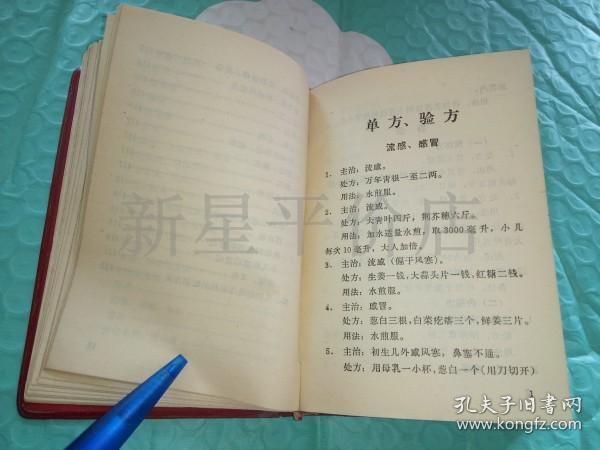 单方、验方
流感、感冒
1. 主治：流感。
处方：万年青根一至二两。
用法：水煎服。
2. 主治：流感。
处方：大青叶四斤，荆苏穗六斤。
用法：加水适量水煎，取3000毫升，小儿
每次10毫升，大人加倍。
3. 主治：流感（偏于风寒）。
处方：生姜一钱，大蒜头片一钱，红糖二钱。
用法：水煎服。
4. 主治：感冒。
处方：葱白三根，白菜疙瘩三个，鲜姜三片。
用法：水煎服。
5. 主治：初生儿外感风寒，鼻塞不通。
处方：用母乳一小杯，葱白一个（用刀切开）
1
新星平价店
孔夫子旧书网
www.kongfz.com